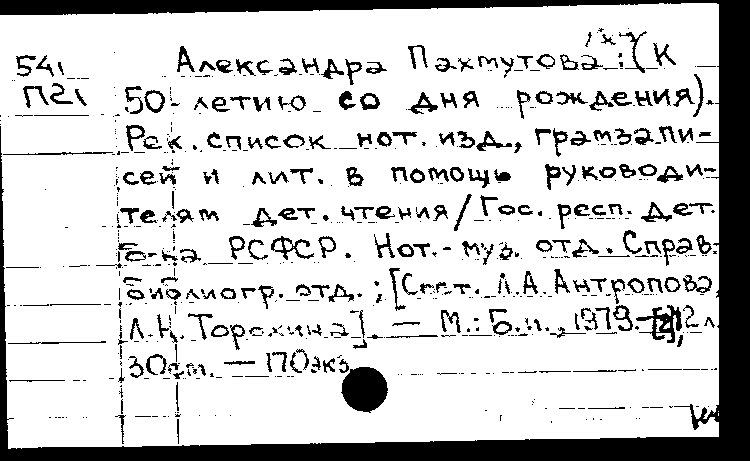 541 Александра Пахмутова : (К
П21 50-летию со дня рождения).
Рек. список нот. изд., грамзапи-
сей и лит. в помощь руководи-
телям дет. чтения / Гос. респ. дет.
б-ка РСФСР. Нот.-муз. отд. Справ.
библиогр. отд. ; [Сост. Л.А. Антропова,
Л.Н. Торохина]. — М.: Б.и., 1979. — [2], 2 л.
30 см. — 170 экз.